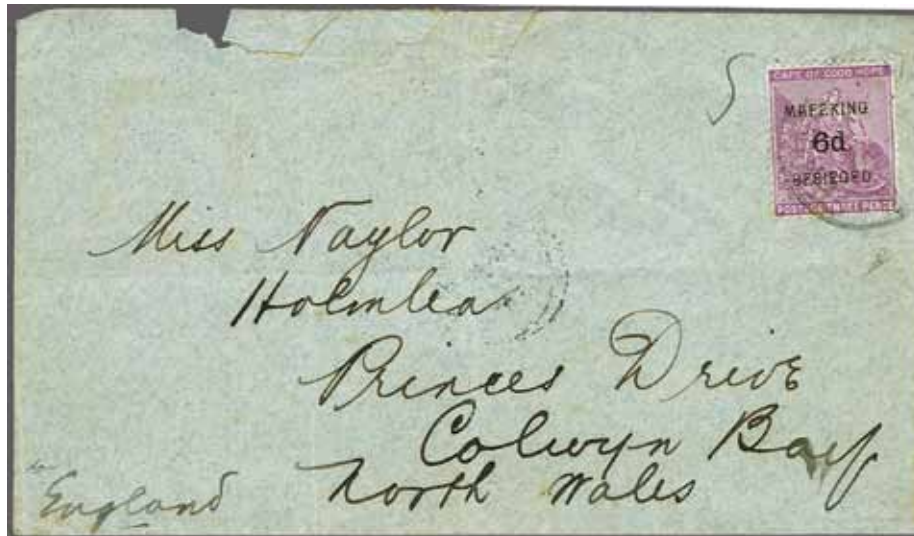 CAPE OF GOOD HOPE
MAFEKING
6d.
BESIEGED
POSTAGE THREE PENCE
Miss Naylor
Holmlea
Princes Drive
Colwyn Bay
North Wales
England